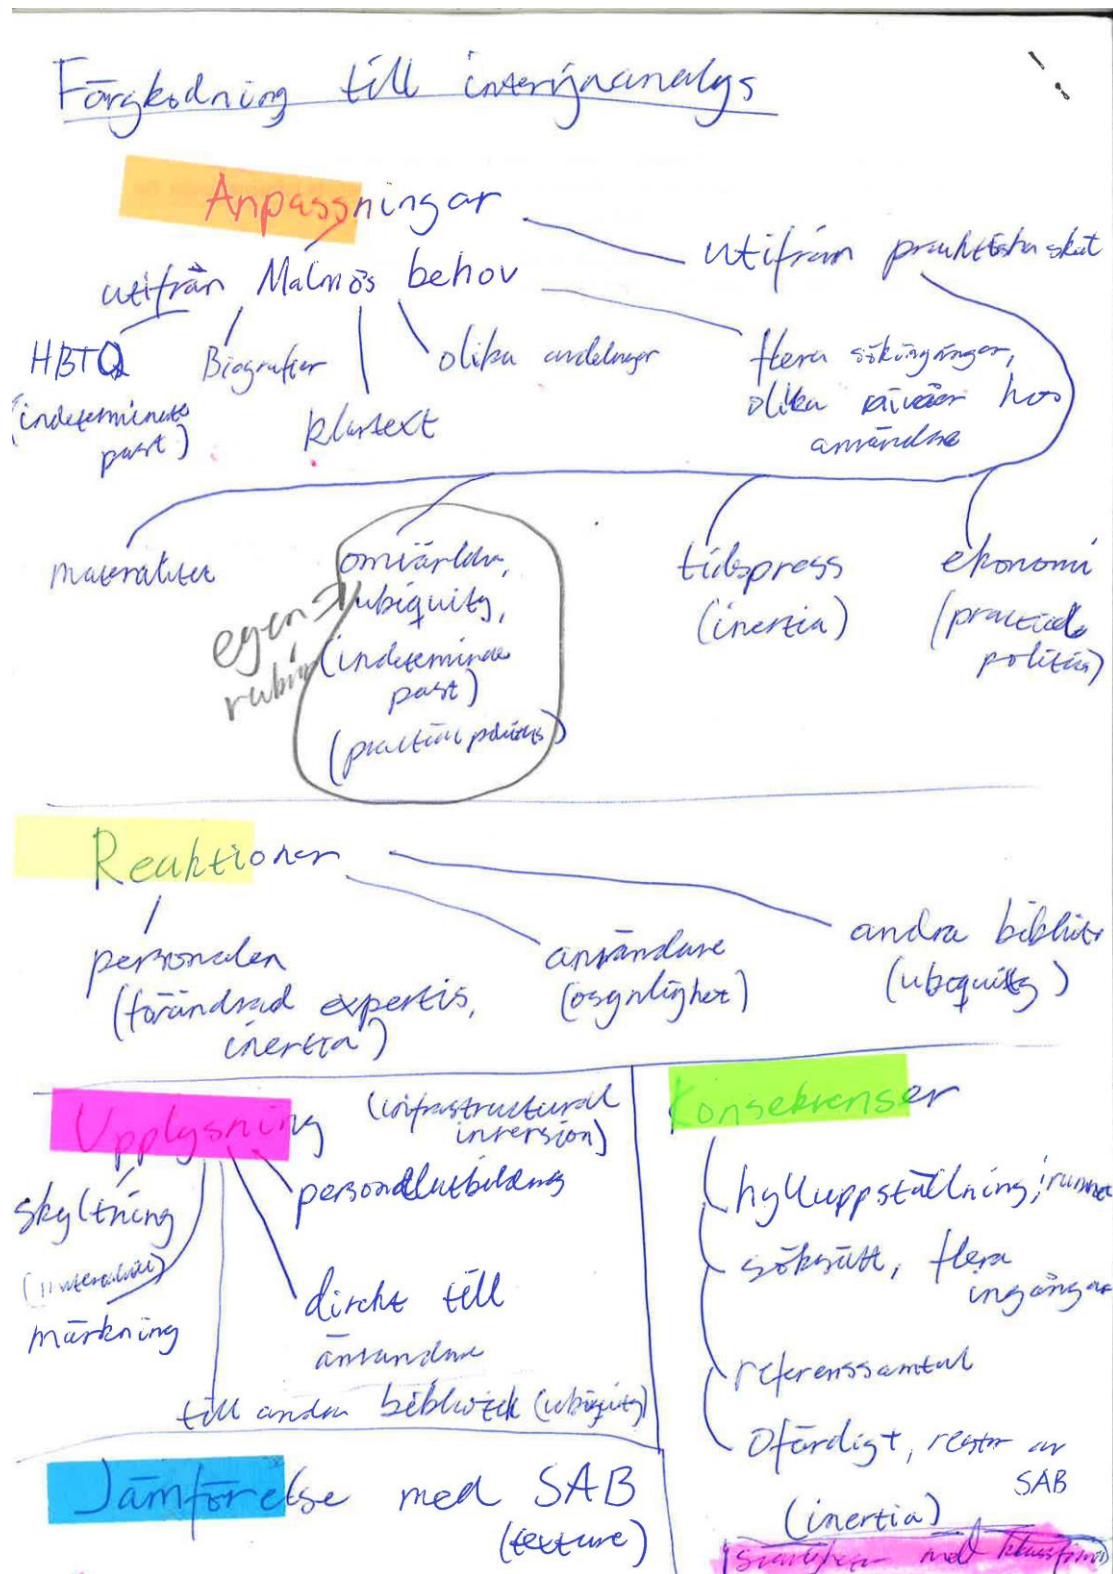 Färgkodning till intervjuanalys
Anpassningar
utifrån Malmös behov
utifrån praktiska skäl
HBTQ
(indeterminate
past)
Biografier
klartext
olika avdelningar
flera sökingångar,
olika nivåer hos
användare
materialitet
omvärlden,
ubiquity,
(indeterminate
past)
(practical politics)
egen
rubrik
tidspress
(inertia)
ekonomi
(practical
politics)
Reaktioner
personalen
(förändrad expertis,
inertia)
användare
(osynlighet)
andra bibliotek
(ubiquity)
Upplysning
(infrastructural
inversion)
skyltning
(materialitet)
märkning
personalutbildning
direkt till
användare
till andra bibliotek (ubiquity)
Jämförelse med SAB
(texture)
Konsekvenser
hylluppställning, rummet
söksätt, flera
ingångar
referenssamtal
Ofärdigt, rester av
SAB
(inertia)
med